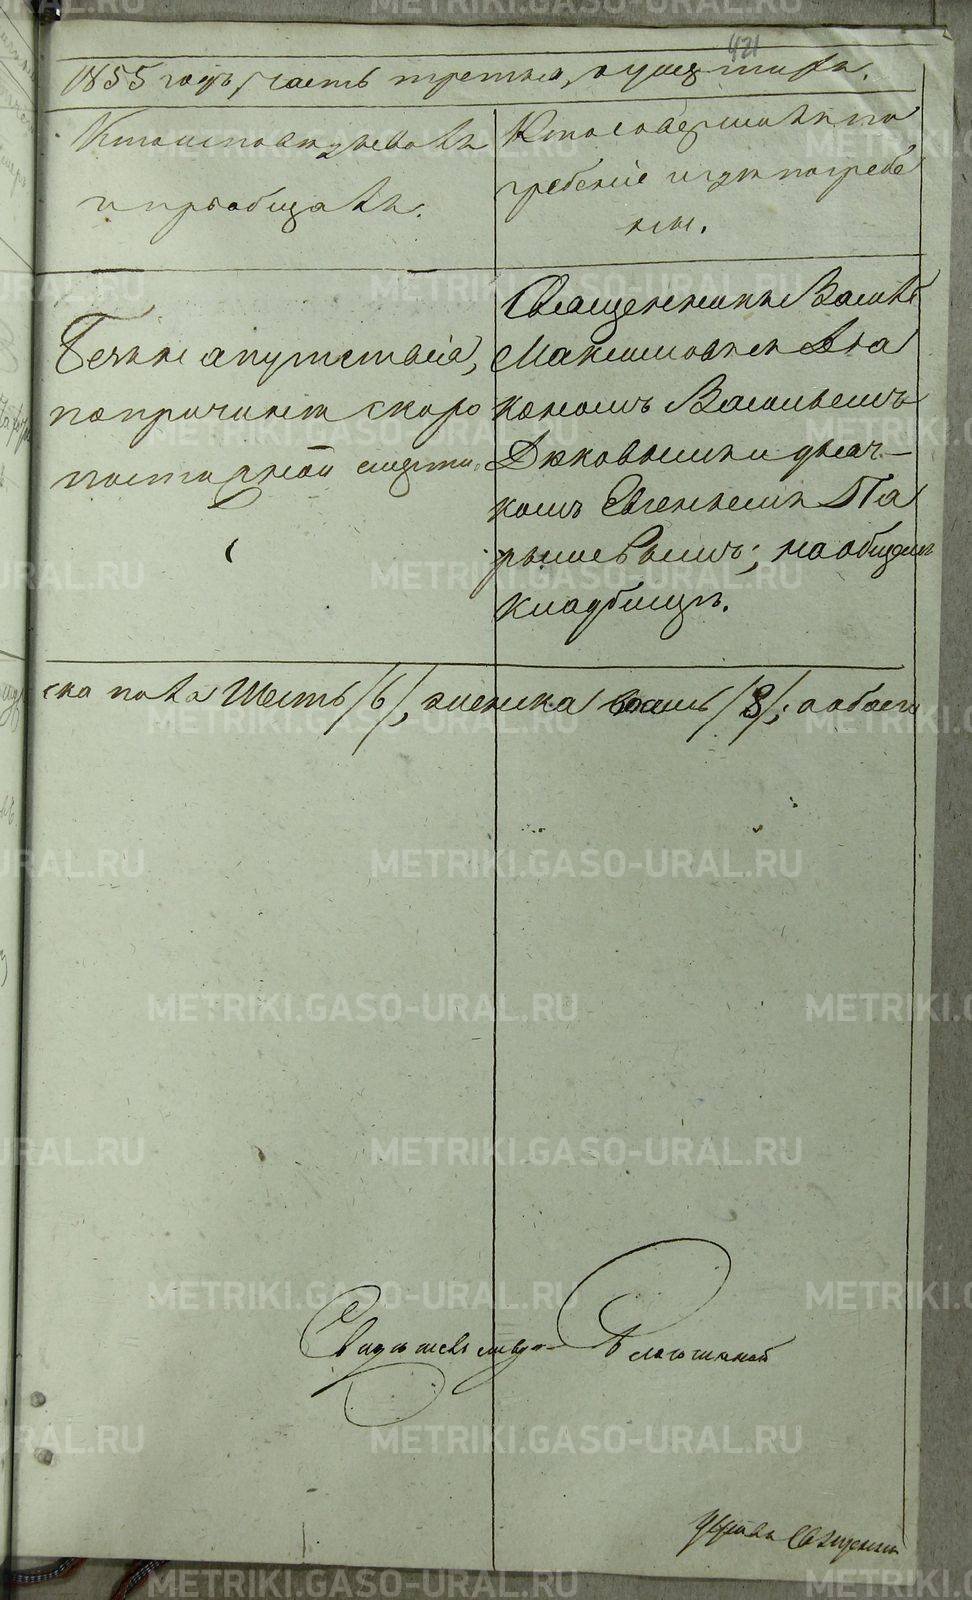 421
1855 годъ, часть третья, о умершихъ.
Кто исповѣдывалъ
и пріобщалъ.
Кто совершалъ по
гребеніе и гдѣ погребе
ны.
Безъ напутствія,
по причинѣ скоро
постижной смерти.
Священникъ Василій
Максимовъ съ Діа
кономъ Васильемъ
и дьяч-
комъ Евгеньемъ Па
рышевымъ; на общемъ
кладбищѣ.
ска пола Шесть /6/, женска восемь /8/; а обоего
Свидѣтельствую Благочинный
Священникъ
METRIKI.GASO-URAL.RU